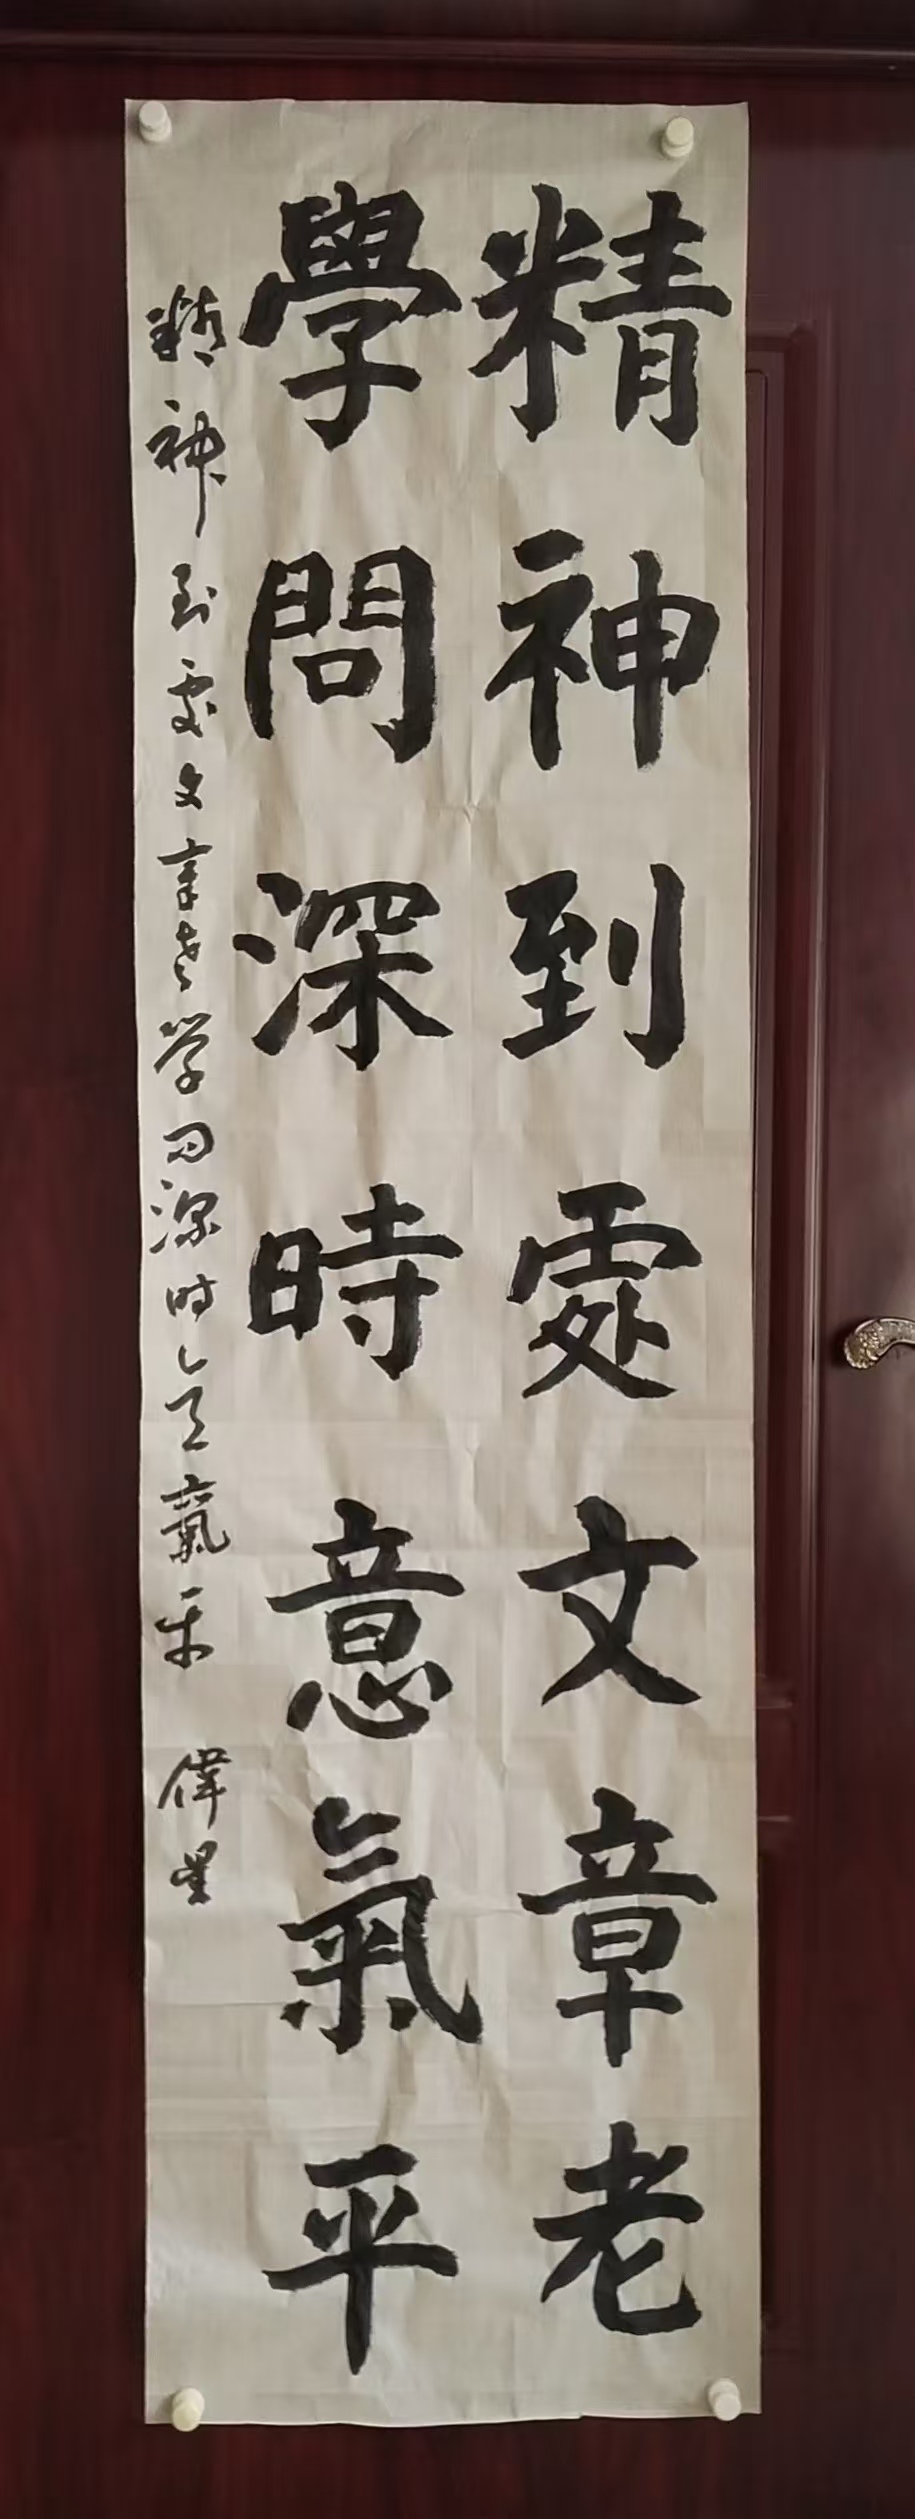 精神到處文章老
學問深時意氣平
精神到處文章老学问深时意氣平 偉星